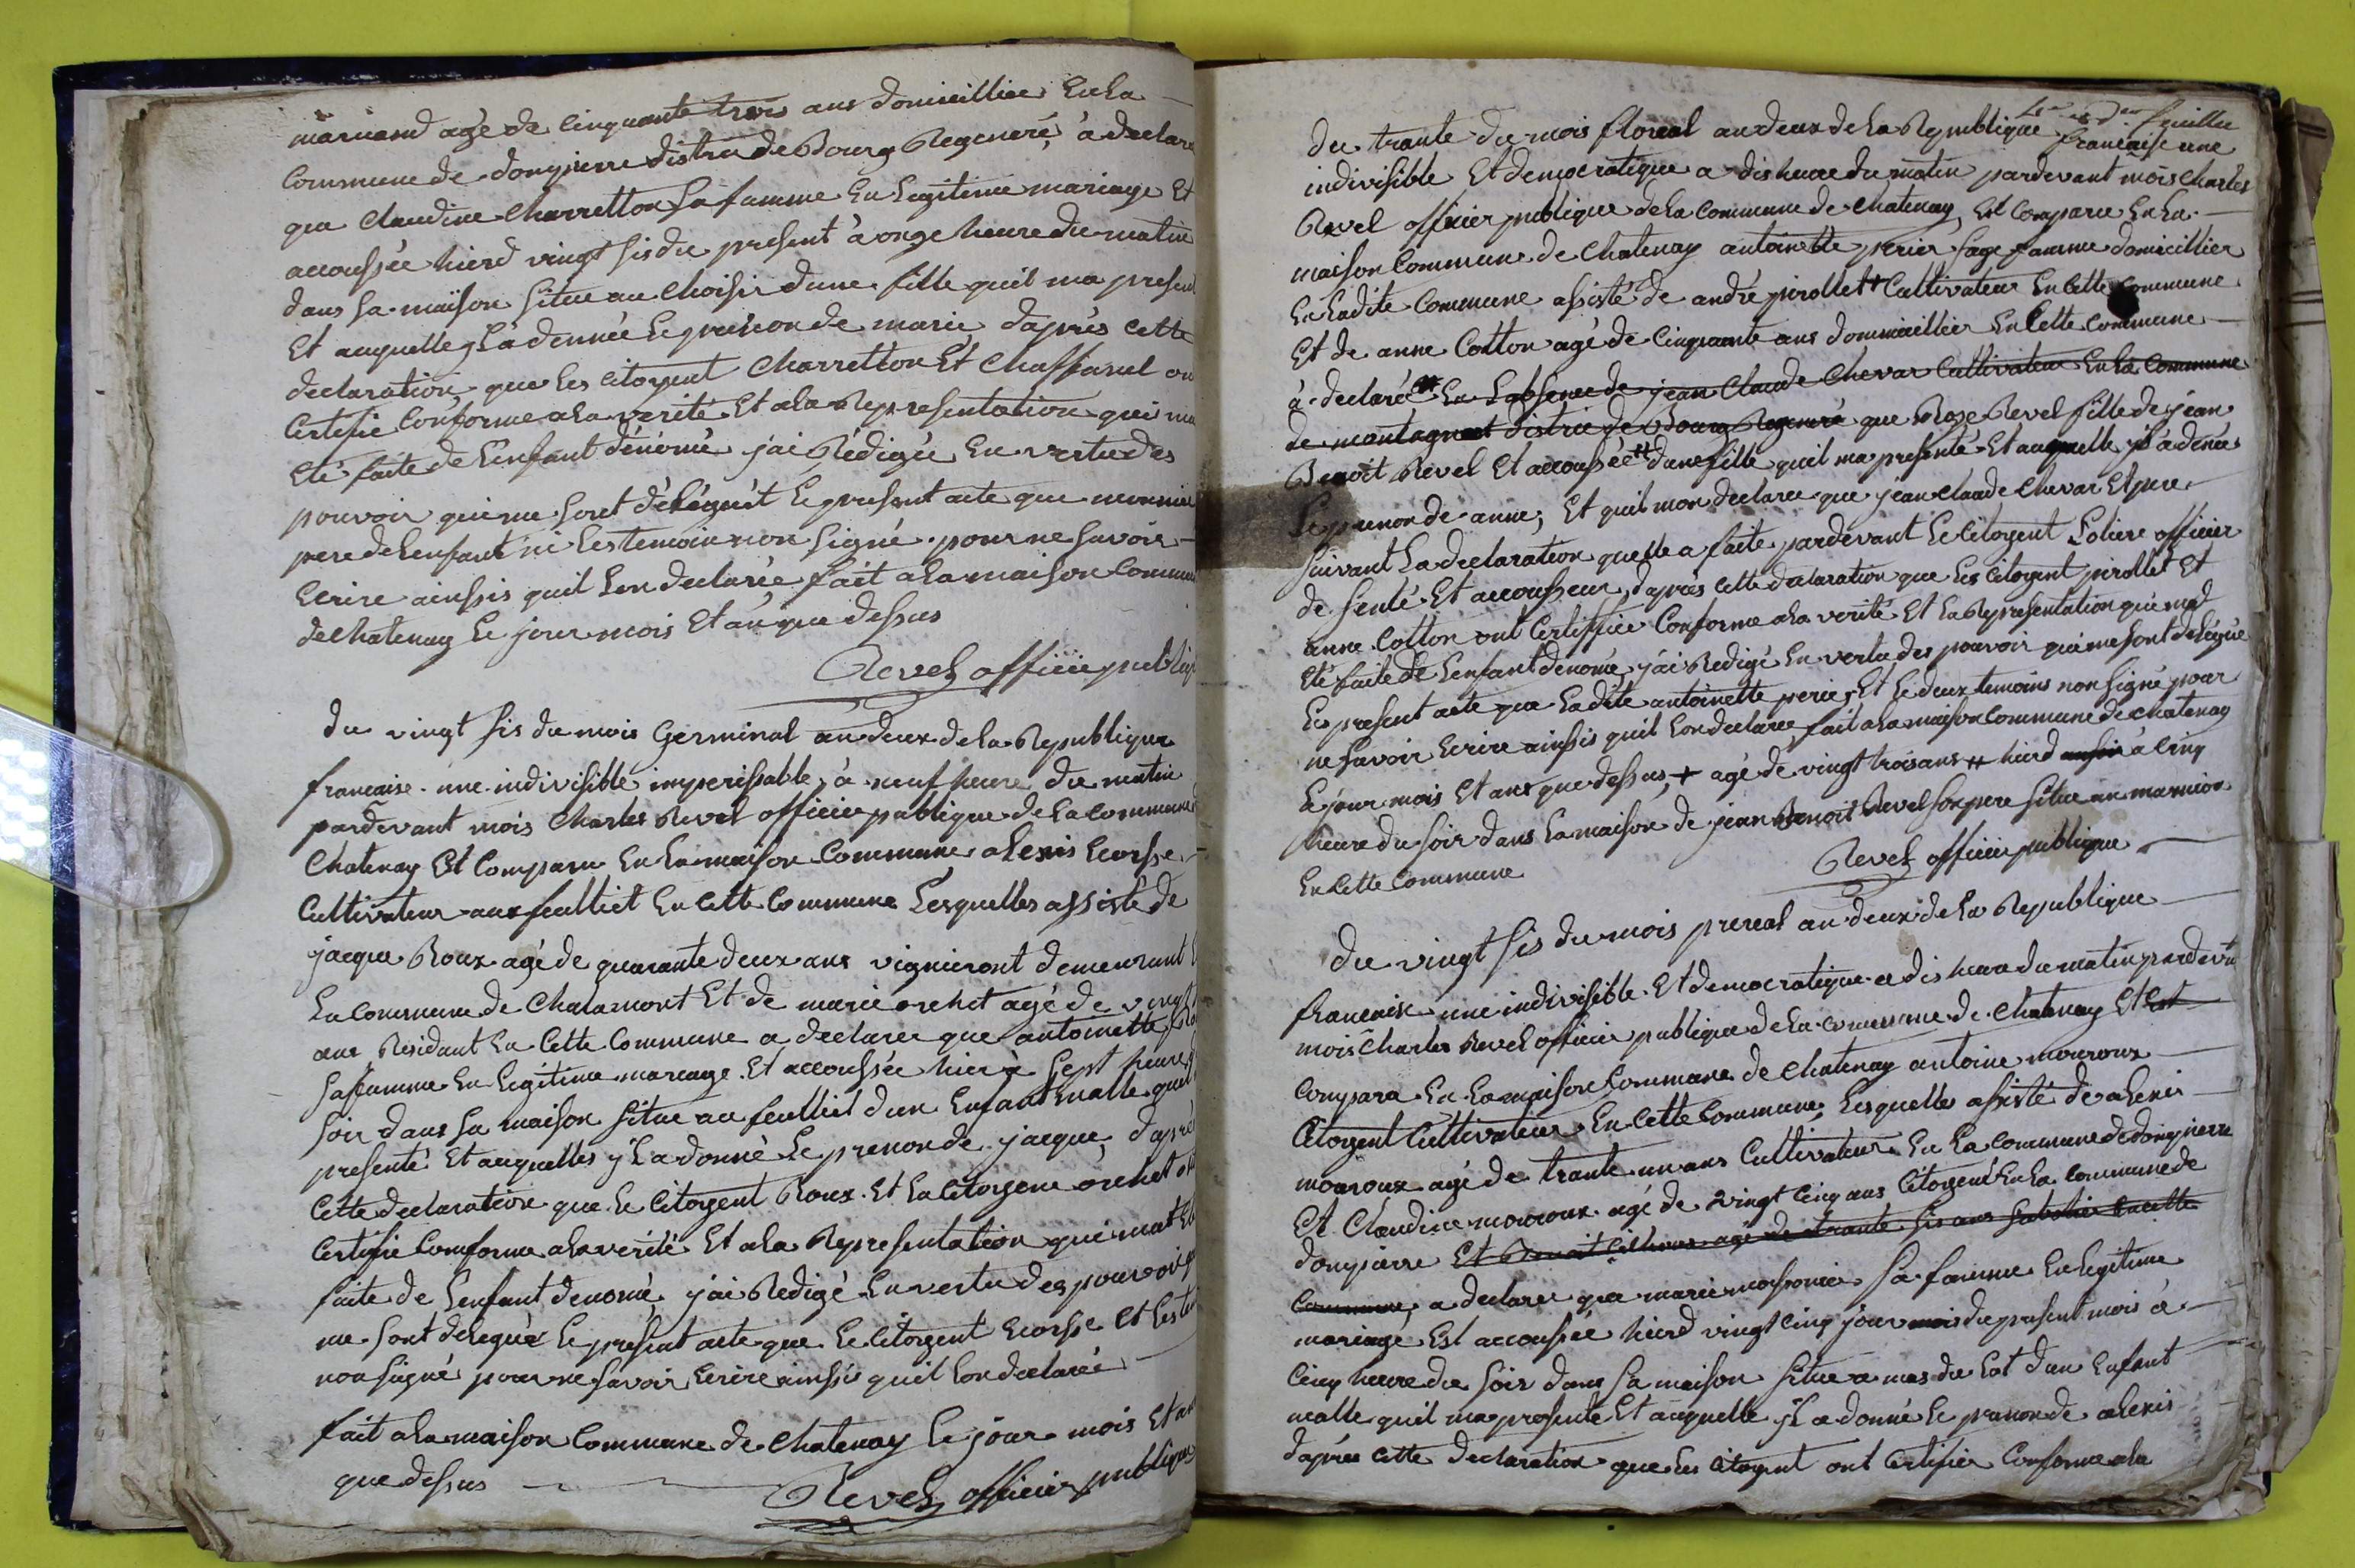 mariand agé de cinquante trois ans domicillier En La
Commune de dompierre distric de Bourg Regeneré, à declaré
que Claudine Charretton Sa famme En Legitime mariage Et
accoussée hierd vingt sis du present à onze heure du matin
dans sa maison situe au Choisir dune fille quil ma present
Et auquelle yl a donnée Le prenon de marie daprès cette
declaration que Les citoyent Charretton Et Chaffanel on
Certifie Conforme a La verité Et a La Representation qui ma
Eté faite de L'enfant dénomé jai Rédigée En vertu des
pouvoir qui me sont délégués Le present acte que
pere de Lenfant ni Les temoin non signé pour ne savoir
Ecrire ainssis quil Lon declarée fait a La maison Commune
de Chatenay Le jour mois Et an que dessus
Revel officie publiq
du vingt sis du mois Germinal an deux de La Republique
francaise une indivisible imperissable, à neuf heure du matin
pardevant mois Charles Revel officie publique de La Commune
Chatenay Et Comparu En La maison Commune alexis Ecorsse
Cultivateur aux feulliet En cette Commune Lesquelles assisté de
jacque Roux agé de quarante deux ans vigneront demeurant
En Commune de Chalamont Et de marie orchet agé de vingt
ans Residant En Cette Commune a declarer que antoinette
sa famme En Legitime mareage Et accoussée hier à sept heure
soir dans sa maison situe au feulliet dun Enfant malle quil
presenté Et auquelles yl a donné Le prenon de jacque, daprè
Cette declaration que Le Citoyent Roux Et La Citoyene orchet
Certifie Comforme a La verité Et a La Representation qui mat Et
faite de L'enfant denomé jai Redigé En vertu des pouvoir q
me sont delegué Le present acte que Le Citoyent Ecorsse Et Les
non signé pour ne savoir Ecrire ainssis quil Lon declarée
fait a La maison Commune de Chatenay Le jour mois Et an
que dessus
Revel officie publique
feuillee
du trante du mois floreal an deux de La Republique francaise une
indivisible Et democratique a dis heure du matin pardevant mois Charles
Revel officier publique de La Commune de Chatenay, Est Comparue En La
maison Commune de Chatenay antoinette perier sage famme domicillier
En Ladite Commune assisté de andré pirollet + Cultivateur En Cette Commune
Et de anne Cotton agé de Cinquante ans dommicillier En Cette Commune
à declaré En Labsence de jean Claude Chevar Cultivateur En La Commune
de montagnat distric de Bourg Regeneré que Roze Revel fille de jean
Benoit Revel Et accoussée ++ dune fille quil ma presenté Et auquelle yl a donée
Le prenon de anne, Et quil mon declaree que jean Claude Chevar Et pere
suivant La declaration quelle a faite pardevant Le Citoyent Loliere officier
de senté Et accousseur, daprès cette declaration que Les Citoyent pirollet Et
anne Cotton ont Certiffiée Conforme a La verité Et La Representation qui mat
Eté faite de Lenfant denomé, jai Redigé En vertu des pouvoir qui me sont delégué
Le present acte que Ladite antoinette perier, Et Le deux temoins non signé pour
ne savoir Ecrire ainssis quil Lon declaree fait a La maison Commune de Chatenay
Le jour mois Et ans que dessus, + agé de vingt trois ans ++ hierd à Cinq
heure du soir dans La maison de jean Benoit Revel son pere situe au marnion
En Cette Commune
Revel officie publique
Du vingt sis du mois prereal an deux de La Republique
francaise une indivisible Et democratique a dis heure du matin pardevan
mois Charles Revel officie publique de La Commune de Chatenay Et Est
Compara En La maison Commune de Chatenay antoine mouroux
Citoyent Cultivateur En Cette Commune, Lesquelles assisté de alexis
mouroux agé de trante un ans Cultivateur En La Commune de dompierre
Et Claudine mouroux agé de vingt Cinq ans Citoyene En La Commune de
dompierre Et Benoit agé de trante sis ans Sabotier En cette
Commune, a declaree que marie massonier sa famme En Legitime
mariage Est accoussée hierd vingt Cinq jour mois du present mois à
Cinq heure du soir dans sa maison situe a mas du Lat dun Enfant
malle quil ma presenté Et auquelle yl a donné Le prenon de alexis
daprès cette declaration que Les Citoyent ont Certifier Conforme a La